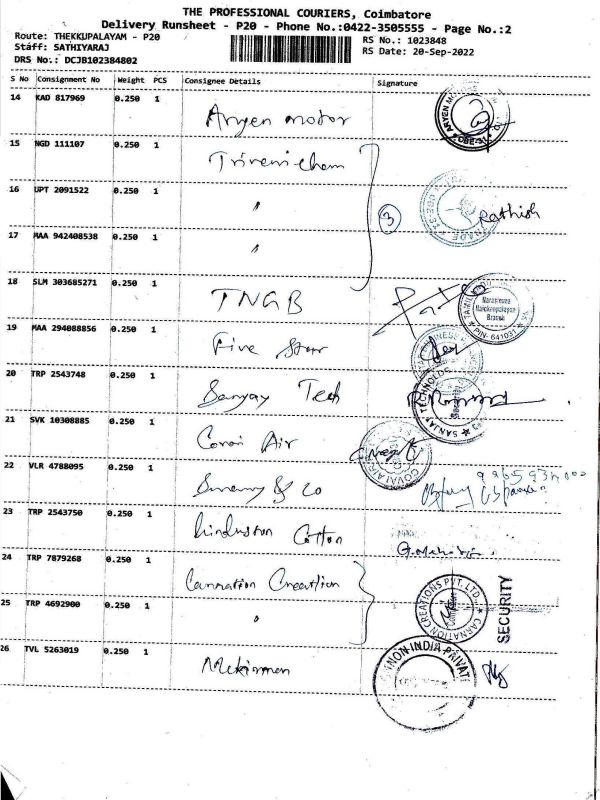 THE PROFESSIONAL COURIERS, Coimbatore
Delivery Runsheet - P20 - Phone No.:0422-3505555 - Page No.:2
Route: THEKKUPALAYAM - P20 RS No.: 1023848
Staff: SATHIYARAJ RS Date: 20-Sep-2022
DRS No.: DCJB102384802
S No Consignment No Weight PCS Consignee Details Signature
14 KAD 817969 0.250 1 Aryen motor
15 NGD 111107 0.250 1 Triveni chem
16 UPT 2091522 0.250 1 〃 3 Rathish
17 MAA 942408538 0.250 1 〃
18 SLM 303685271 0.250 1 TNGB
Branch
PIN-641031
19 MAA 294088856 0.250 1 Five Star
20 TRP 2543748 0.250 1 Sanjay Tech
SANJAY TECHNOLOG
21 SVK 10308885 0.250 1 Covai Air
COVAI AIR
22 VLR 4788095 0.250 1
23 TRP 2543750 0.250 1 hindustan Cotton
24 TRP 7879268 0.250 1 Carnation Creation
CARNATION CREATIONS PVT. LTD.
SECURITY
25 TRP 4692900 0.250 1 〃
26 TVL 5263019 0.250 1
NON INDIA PRIVATE